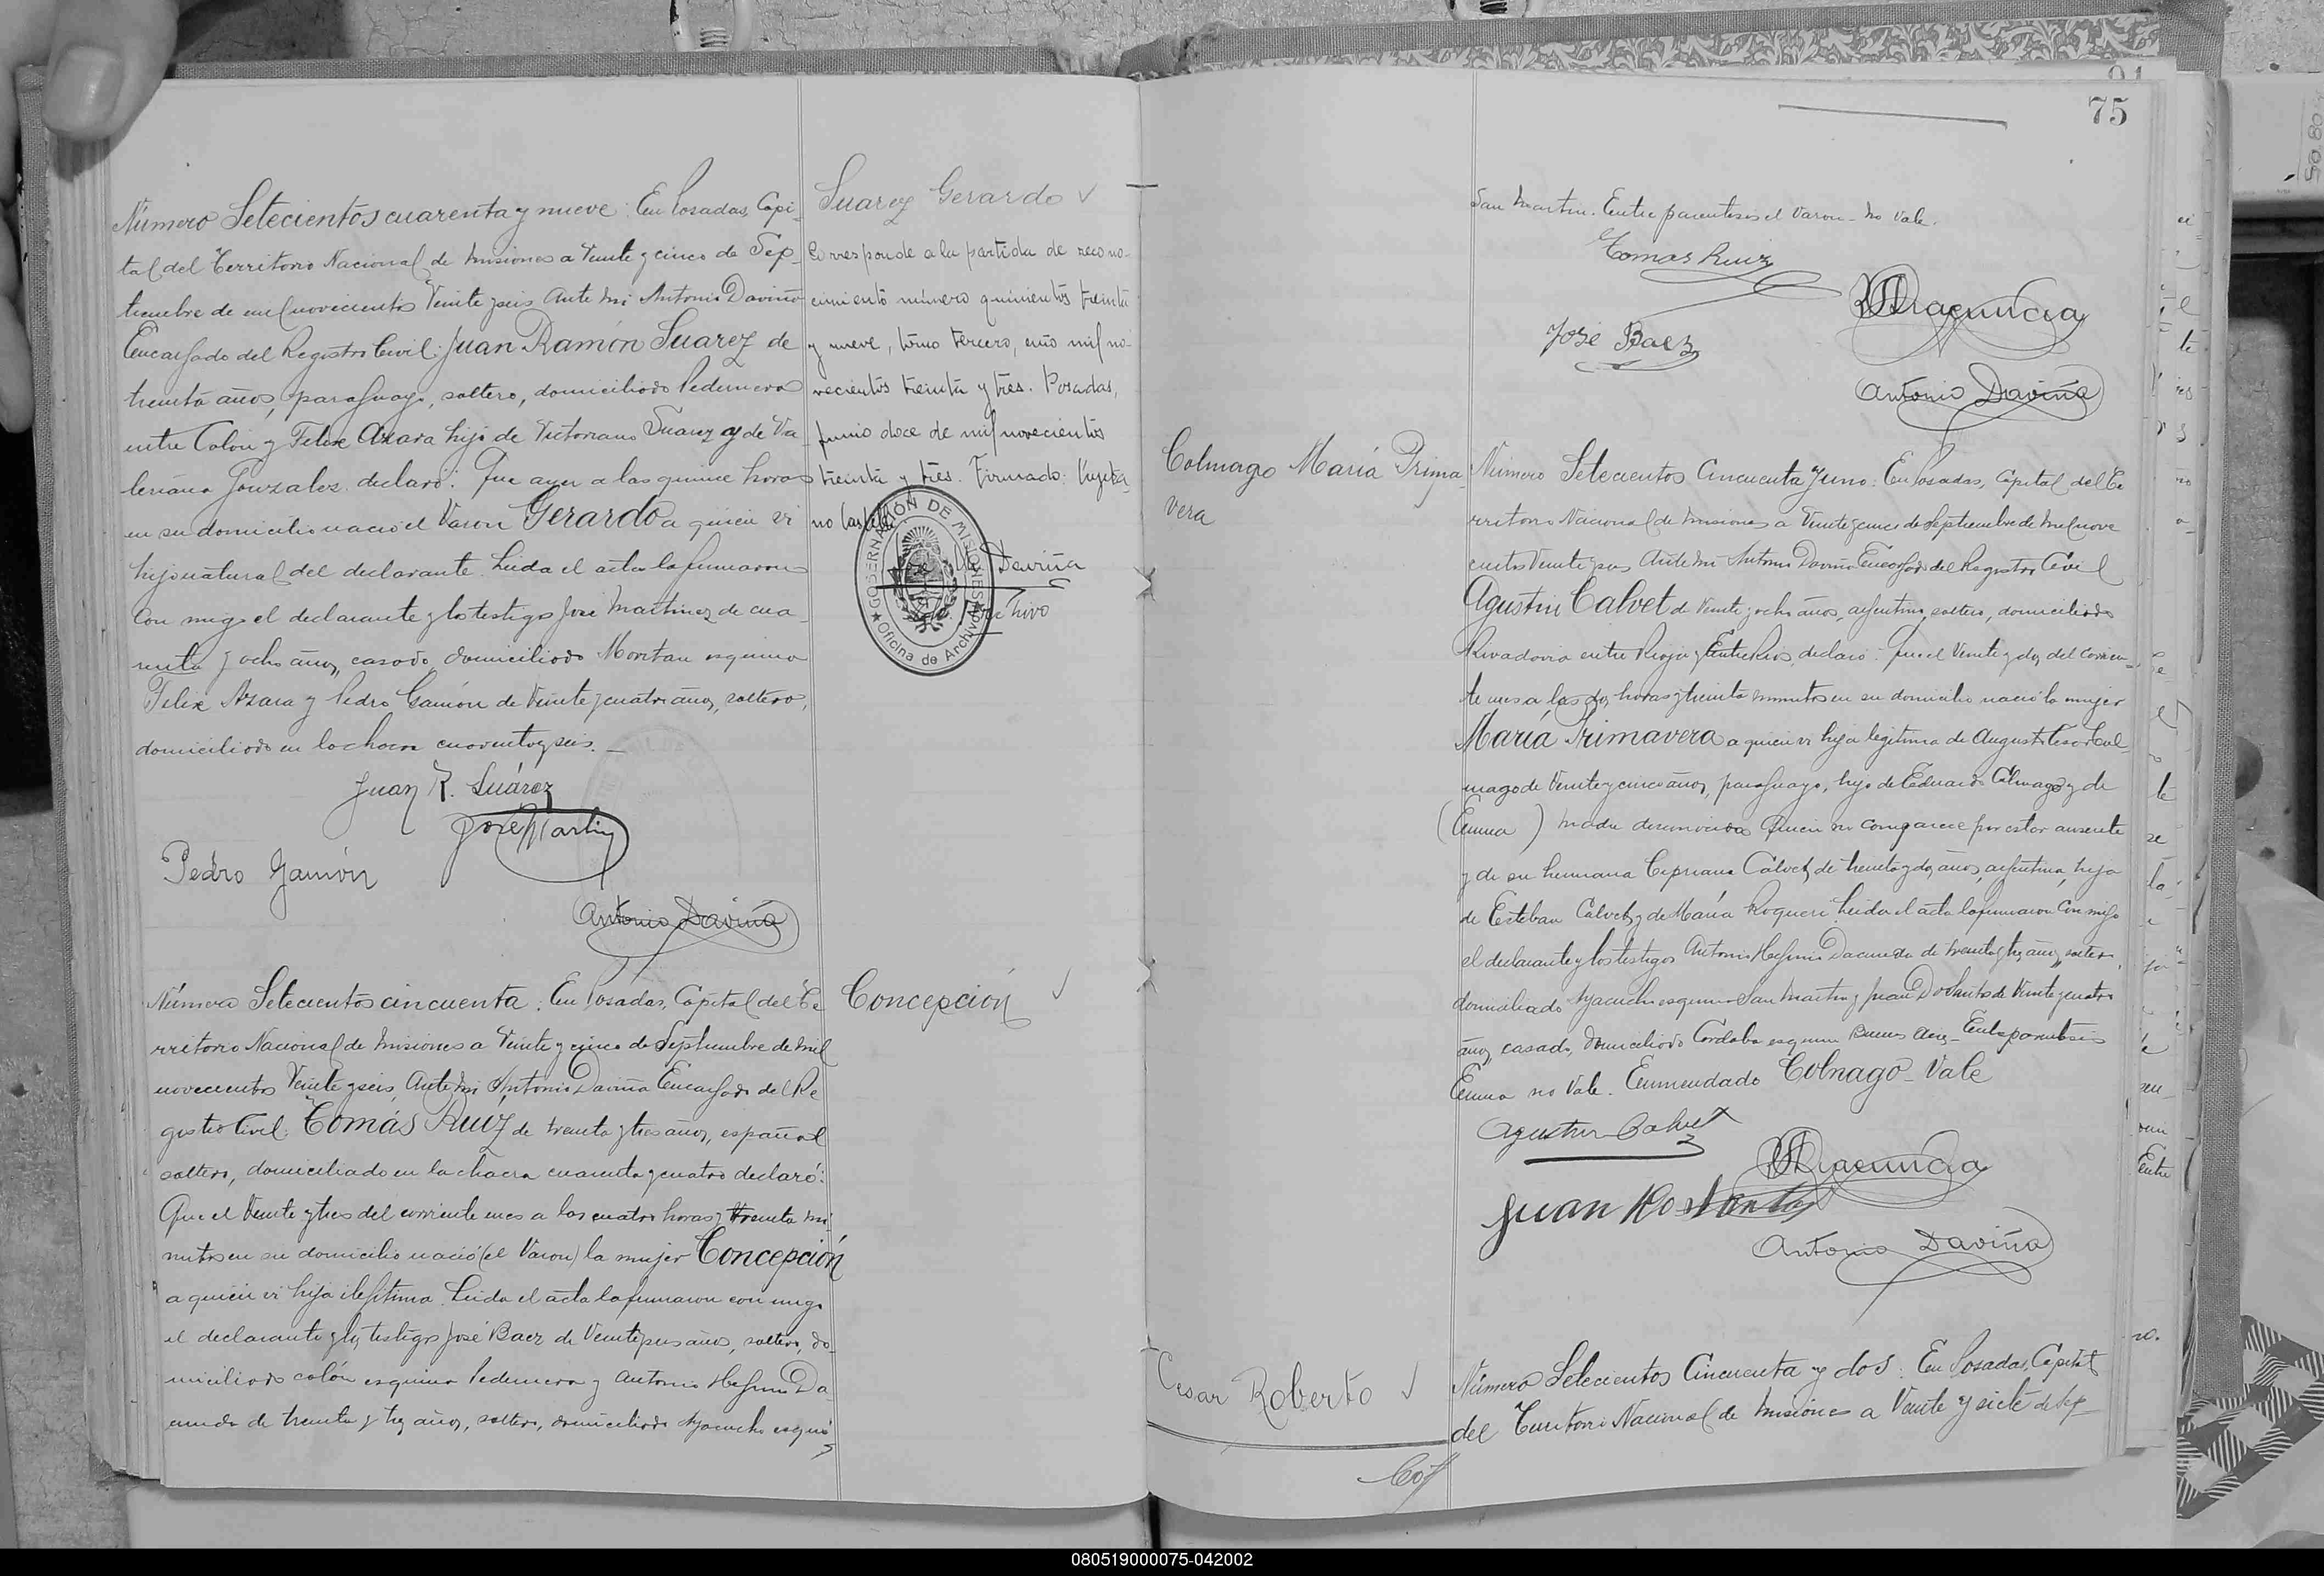 Suarez Gerardo
Número Setecientos cuarenta y nueve: En Posadas, Capi-
tal del Territorio Nacional de Misiones a Veinte y cinco de Sep-
tiembre de mil novecientos Veinte y seis, Ante mi Antonio Daviña
Encargado del Registro Civil: Juan Ramón Suarez de
treinta años, paraguayo, soltero, domiciliado Pedernera
entre Colon y Felix Azara hijo de Victoriano Suarez y de Va-
leriana Gonzalez, declaró: Que ayer a las quince horas
en su domicilio nació el Varon Gerardo a quien vi
hijo natural del declarante. Leida el acta la firmaron
con migo el declarante y los testigos José Martinez de cua-
renta y ocho años, casado, domiciliado esquina
Felix Azara y Pedro Gamón de Veinte y cuatro años, soltero,
domiciliado en la chacra cuarenta y seis.
Juan R. Suárez
José Martin
Pedro Gamón
Antonio Daviña
Corresponde a la partida de recono-
cimiento número quinientos treinta
y nueve, tomo tercero, año mil no-
vecientos treinta y tres. Posadas,
Junio doce de mil novecientos
treinta y tres. Firmado:
no
GOBERNACIÓN DE MISIONES
Oficina de Archivo
Daviña
Archivo
Concepción
Número Setecientos cincuenta: En Posadas, Capital del Te-
rritorio Nacional de Misiones a Veinte y cinco de Septiembre de mil
novecientos Veinte y seis, Ante mi Antonio Daviña Encargado del Re-
gistro Civil: Tomás Ruiz de treinta y tres años, español
soltero, domiciliado en la chacra cuarenta y cuatro declaró:
Que el Veinte y tres del corriente mes a las cuatro horas y treinta mi-
nutos en su domicilio nació (el Varon) la mujer Concepción
a quien vi hija ilegítima. Leida el acta la firmaron con migo
el declarante y los testigos José Baez de Veinte y seis años, soltero, do-
miciliado colón esquina Pedernera y Antonio
de treinta y tres años, soltero, domiciliado Ayacucho esqui-
75
San Martin. Entre parentesis el Varon - no Vale.
Tomas Ruiz
José Baez
Antonio Daviña
Colmago María Prima-
vera
Número Setecientos Cincuenta y uno: En Posadas, Capital del Te-
rritorio Nacional de Misiones a Veinte y cinco de Septiembre de mil nove-
cientos Veinte y seis Ante mi Antonio Daviña Encargado del Registro Civil
Agustin Calvet de Veinte y ocho años, argentino, soltero, domiciliado
Rivadavia entre Rioja y Entre Rios, declaró: Que el Veinte y dos del corrien-
te mes a las dos horas y treinta minutos en su domicilio nació la mujer
María Primavera a quien vi hija legitima de
mago de Veinte y cinco años, paraguayo, hijo de Eduardo Colmago y de
(Emma) madre desconocida quien no comparece por estar ausente
y de su hermana Cipriana Calvet, de treinta y dos años, argentina, hija
de Esteban Calvet y de María Leida el acta la firmaron con migo
el declarante y los testigos Antonio de treinta y tres años, soltero,
domiciliado Ayacucho esquina San Martin y Juan de Veinte y cuatro
años, casado, domiciliado Cordoba esquina Buenos Aires - Entre parentesis
Emma no Vale. Enmendado Colnago - Vale
Agustin Calvet
Juan
Antonio Daviña
Cesar Roberto
Número Setecientos Cincuenta y dos: En Posadas, Capital
del Territorio Nacional de Misiones a Veinte y siete de Sep-
080519000075-042002